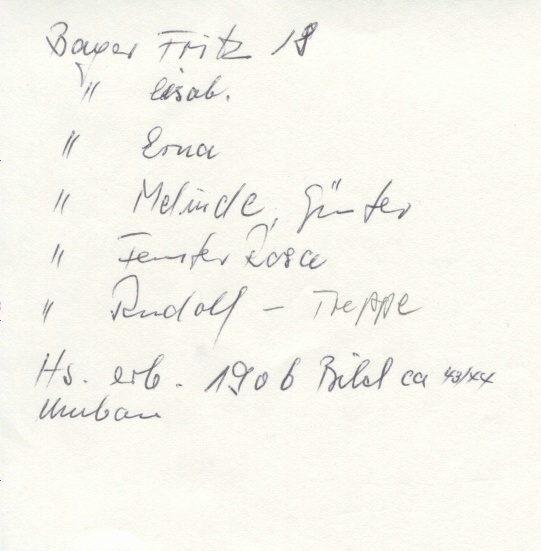 Bayer Fritz 18
" Elisab.
" Erna
" Melinde, Günter
" Fenster Rosa
" Rudolf - Treppe
Hs. erb. 1906 Bild ca 43/44
Umbau